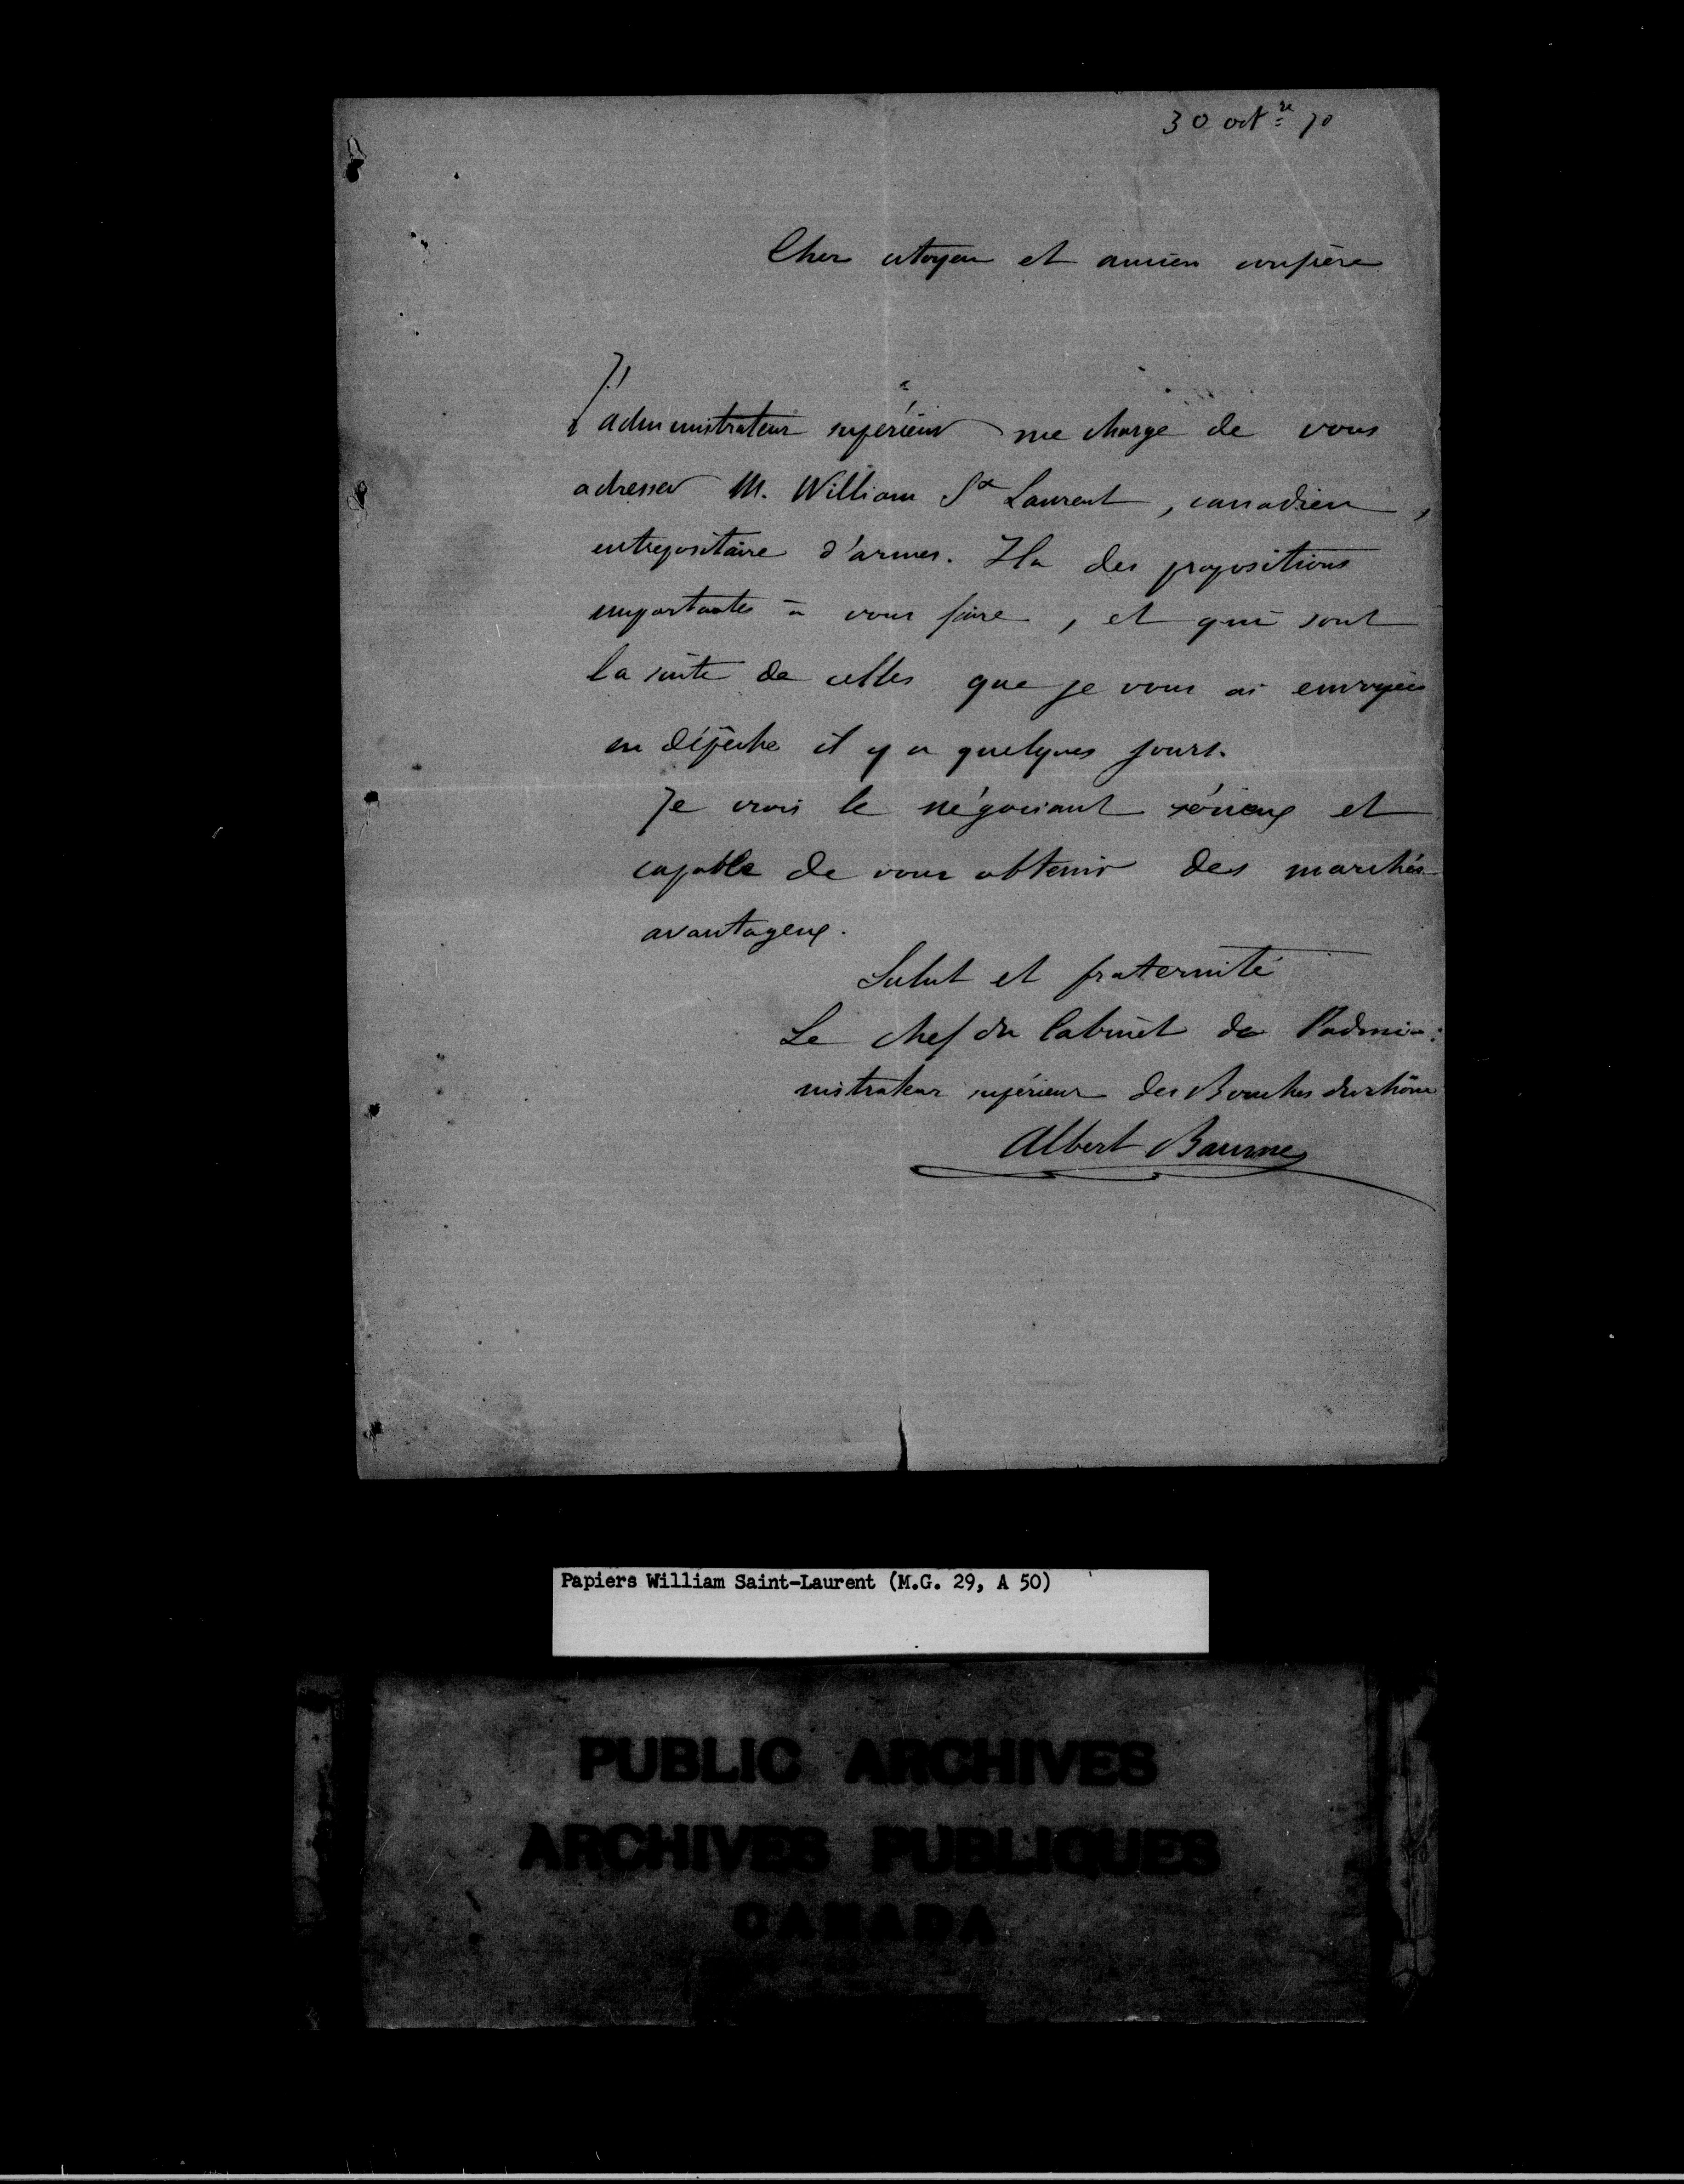 30 oct.re 70
Cher citoyen et ancien confrère
L'administrateur supérieur me charge de vous
adresser M. William St Laurent, canadien,
entrepositaire d'armes. Il a des propositions
importantes à vous faire, et qui sont
la suite de celles que je vous ai envoyées
en dépêche il y a quelques jours.
Je crois le négociant sérieux et
capable de vous obtenir des marchés
avantageux.
Salut et fraternité
Le chef du Cabinet de l'admi-
nistrateur supérieur des Bouches du rhône
Albert Baume
Papiers William Saint-Laurent (M.G. 29, A 50)
PUBLIC ARCHIVES
ARCHIVES PUBLIQUES
CANADA